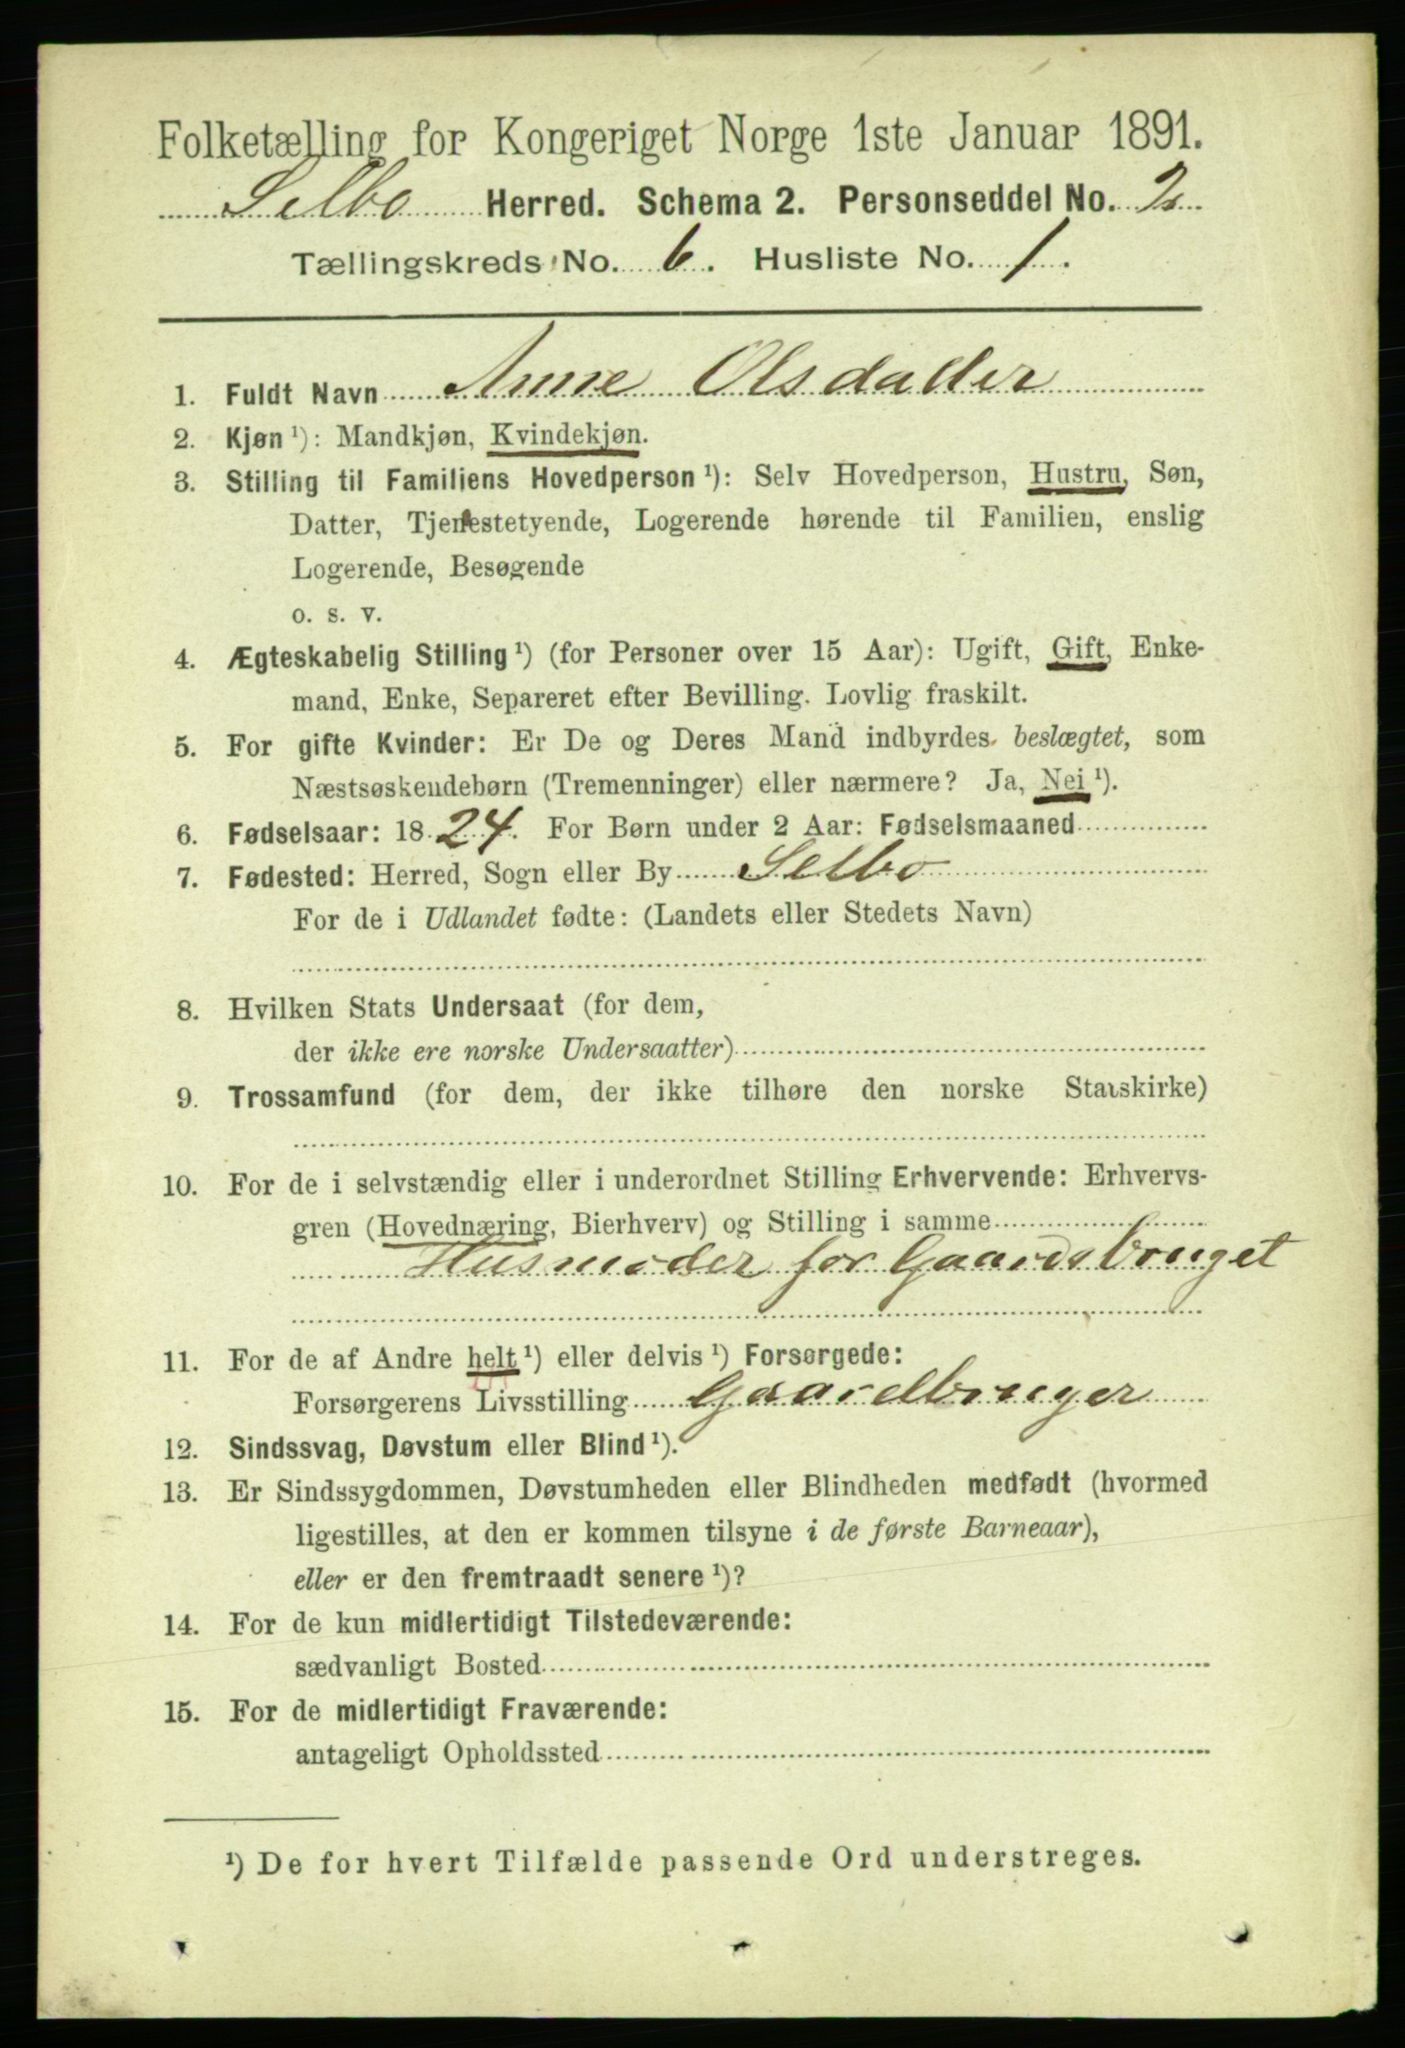 Folketælling for Kongeriget Norge 1ste Januar 1891.
Selbo Herred. Schema 2. Personseddel No. 2.
Tællingskreds No. 6. Husliste No. 1.
1. Fuldt Navn Anne Olsdatter
2. Kjøn ¹): Mandkjøn, Kvindekjøn.
3. Stilling til Familiens Hovedperson ¹): Selv Hovedperson, Hustru, Søn,
Datter, Tjenestetyende, Logerende hørende til Familien, enslig
Logerende, Besøgende
o. s. v.
4. Ægteskabelig Stilling ¹) (for Personer over 15 Aar): Ugift, Gift, Enke-
mand, Enke, Separeret efter Bevilling. Lovlig fraskilt.
5. For gifte Kvinder: Er De og Deres Mand indbyrdes beslægtet, som
Næstsøskendebørn (Tremenninger) eller nærmere? Ja, Nei ¹).
6. Fødselsaar: 1824. For Børn under 2 Aar: Fødselsmaaned
7. Fødested: Herred, Sogn eller By Selbo
For de i Udlandet fødte: (Landets eller Stedets Navn)
8. Hvilken Stats Undersaat (for dem,
der ikke ere norske Undersaatter)
9. Trossamfund (for dem, der ikke tilhøre den norske Statskirke)
10. For de i selvstændig eller i underordnet Stilling Erhvervende: Erhvervs-
gren (Hovednæring, Bierhverv) og Stilling i samme
Husmoder for Gaardsbruget
11. For de af Andre helt ¹) eller delvis ¹) Forsørgede:
Forsørgerens Livsstilling Gaardbruger
12. Sindssvag, Døvstum eller Blind ¹).
13. Er Sindssygdommen, Døvstumheden eller Blindheden medfødt (hvormed
ligestilles, at den er kommen tilsyne i de første Barneaar),
eller er den fremtraadt senere ¹)?
14. For de kun midlertidigt Tilstedeværende:
sædvanligt Bosted
15. For de midlertidigt Fraværende:
antageligt Opholdssted
¹) De for hvert Tilfælde passende Ord understreges.